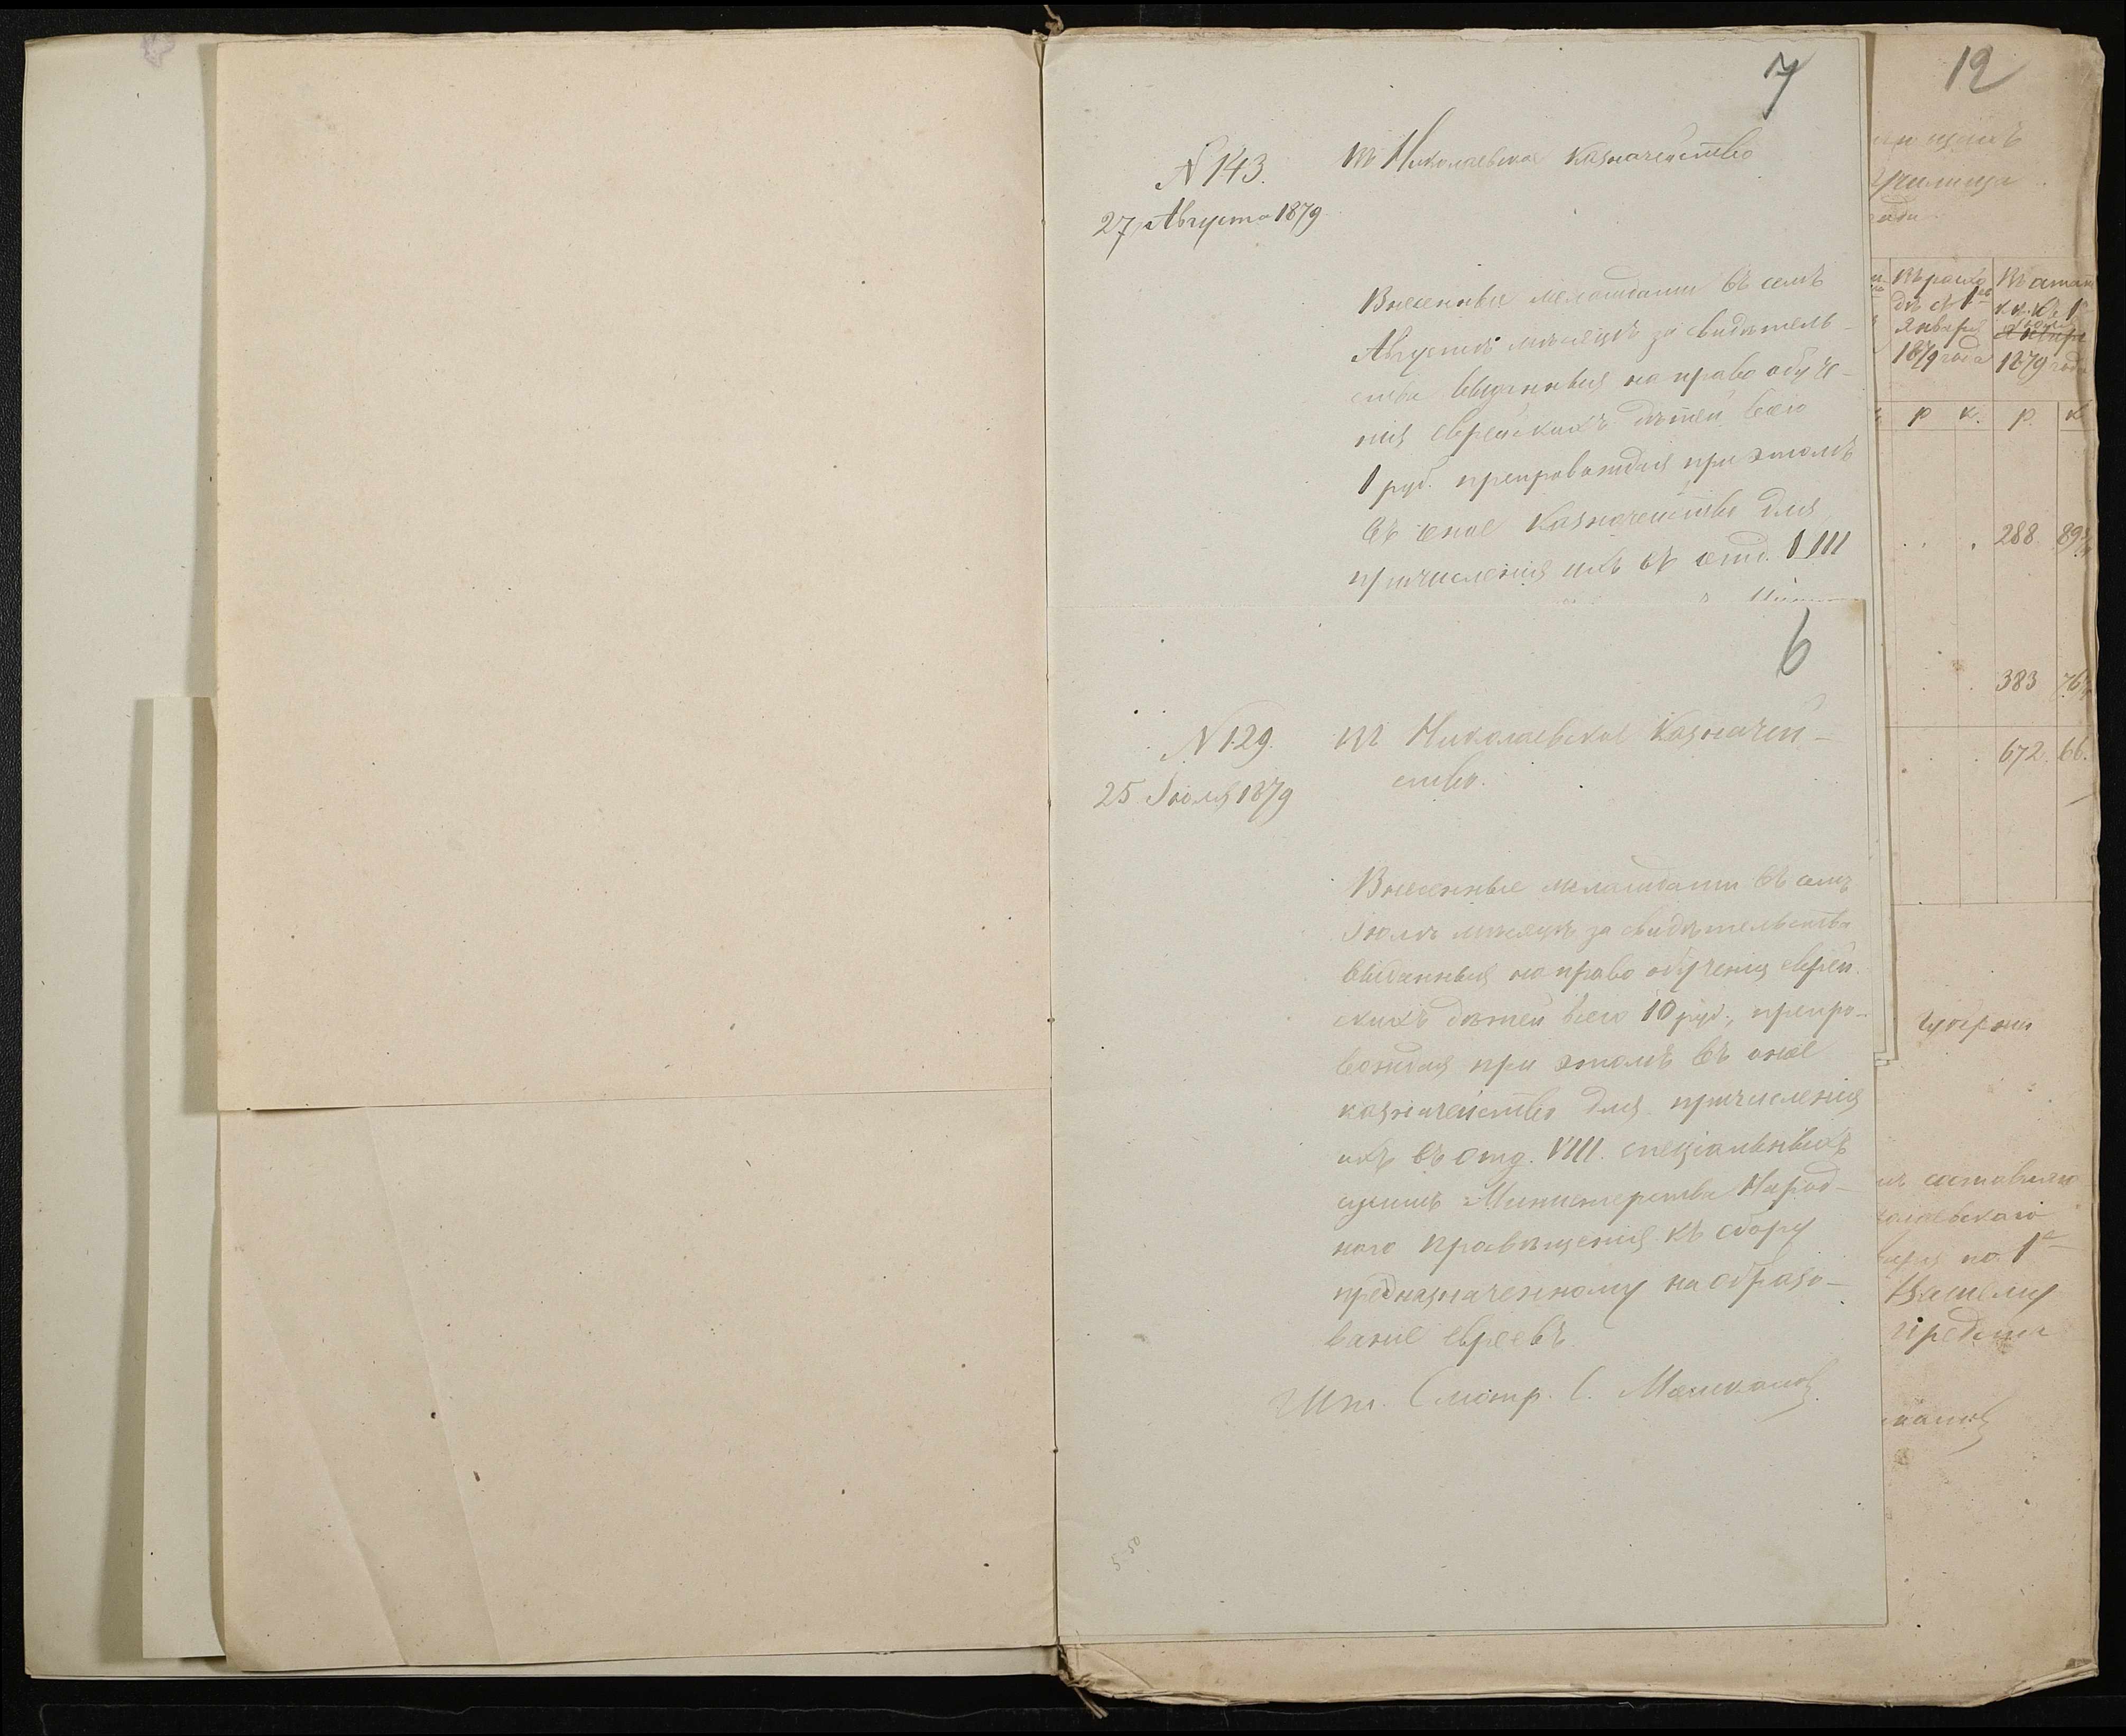 7
N 143.
27 Августа 1879
Въ Николаевское Казначейство
Внесенные меламдами въ семъ
Августѣ мѣсяцѣ за свидѣтель-
ства выданныя на право обуче-
нія еврейскихъ дѣтей всего
1 руб. препровождая при этомъ
въ оное Казначейство для
причисленія ихъ въ отд. VIII
6
N 129.
25 Іюля 1879
Въ Николаевское Казначей-
ство.
Внесенные меламдами въ семъ
Іюлѣ мѣсяцѣ за свидѣтельства
выданныя на право обученія еврей-
скихъ дѣтей всего 10 руб., препро-
вождая при этомъ въ оное
казначейство для причисленія
ихъ въ отд. VIII. спеціальныхъ
суммъ Министерства Народ-
наго Просвѣщенія къ сбору
предназначенному на образо-
ваніе евреевъ.
Шт. Смотр. С.
12
Училища
Въ расхо
дѣ съ 1го
Января
1879 года
1879 года
р к. р. к
288 89
383 76
672. 66.
Губерніи
на 1е
Вашему